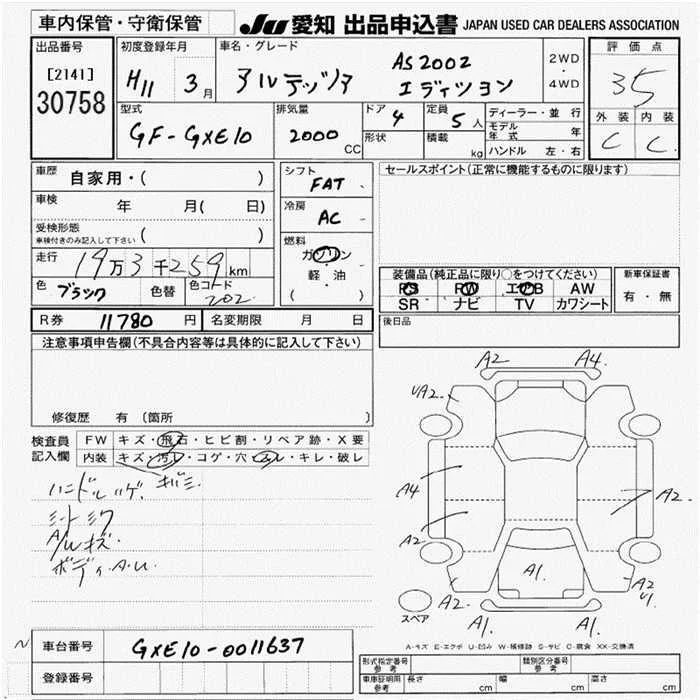 車内保管・守衛保管 JU 愛知 出品申込書 JAPAN USED CAR DEALERS ASSOCIATION
出品番号 初度登録年月 車名・グレード 評価点
[2141] H11 3月 アルテッツァ AS200Z エディション 2WD・4WD 35
30758
型式 排気量 ドア 定員 ディーラー・並行 外装 内装
GF-GXE10 2000CC 4 5人 モデル年式 年 C C
形状 積載 kg ハンドル 左・右
車歴 自家用・( ) シフト FAT セールスポイント(正常に機能するものに限ります)
車検 年 月( 日) 冷房 AC
受検形態 ( )
車検付きのみ記入して下さい
走行 19万3千259km 燃料 ガソリン・軽油 ( )
色 ブラック 色替 色コード 202
装備品(純正品に限り○をつけてください) 新車保証書
PS PW エアB AW 有・無
SR ナビ TV カワシート
R券 11780円 名変期限 月 日 後日品
注意事項申告欄(不具合内容等は具体的に記入して下さい)
修復歴 有 (箇所 )
検査員記入欄 FW キズ・飛石・ヒビ割・リペア跡・X要
内装 キズ・汚レ・コゲ・穴・スレ・キレ・破レ
ハンドルハゲ. キバミ.
シートシワ
A/Wキズ.
ボディ.A.U.
A2 A4.
UA2. A2.
A4 A2.
A2.
A1.
A2. A2 U1
スペア A1. A1.
A-キズ E-エクボ U-凹み W-補修跡 S-サビ C-腐食 XX-交換済
N 車台番号 GXE10-0011637
登録番号
形式指定番号 参考 類別区分番号 参考
車庫証明用 参考 長さ cm 幅 cm 高さ cm